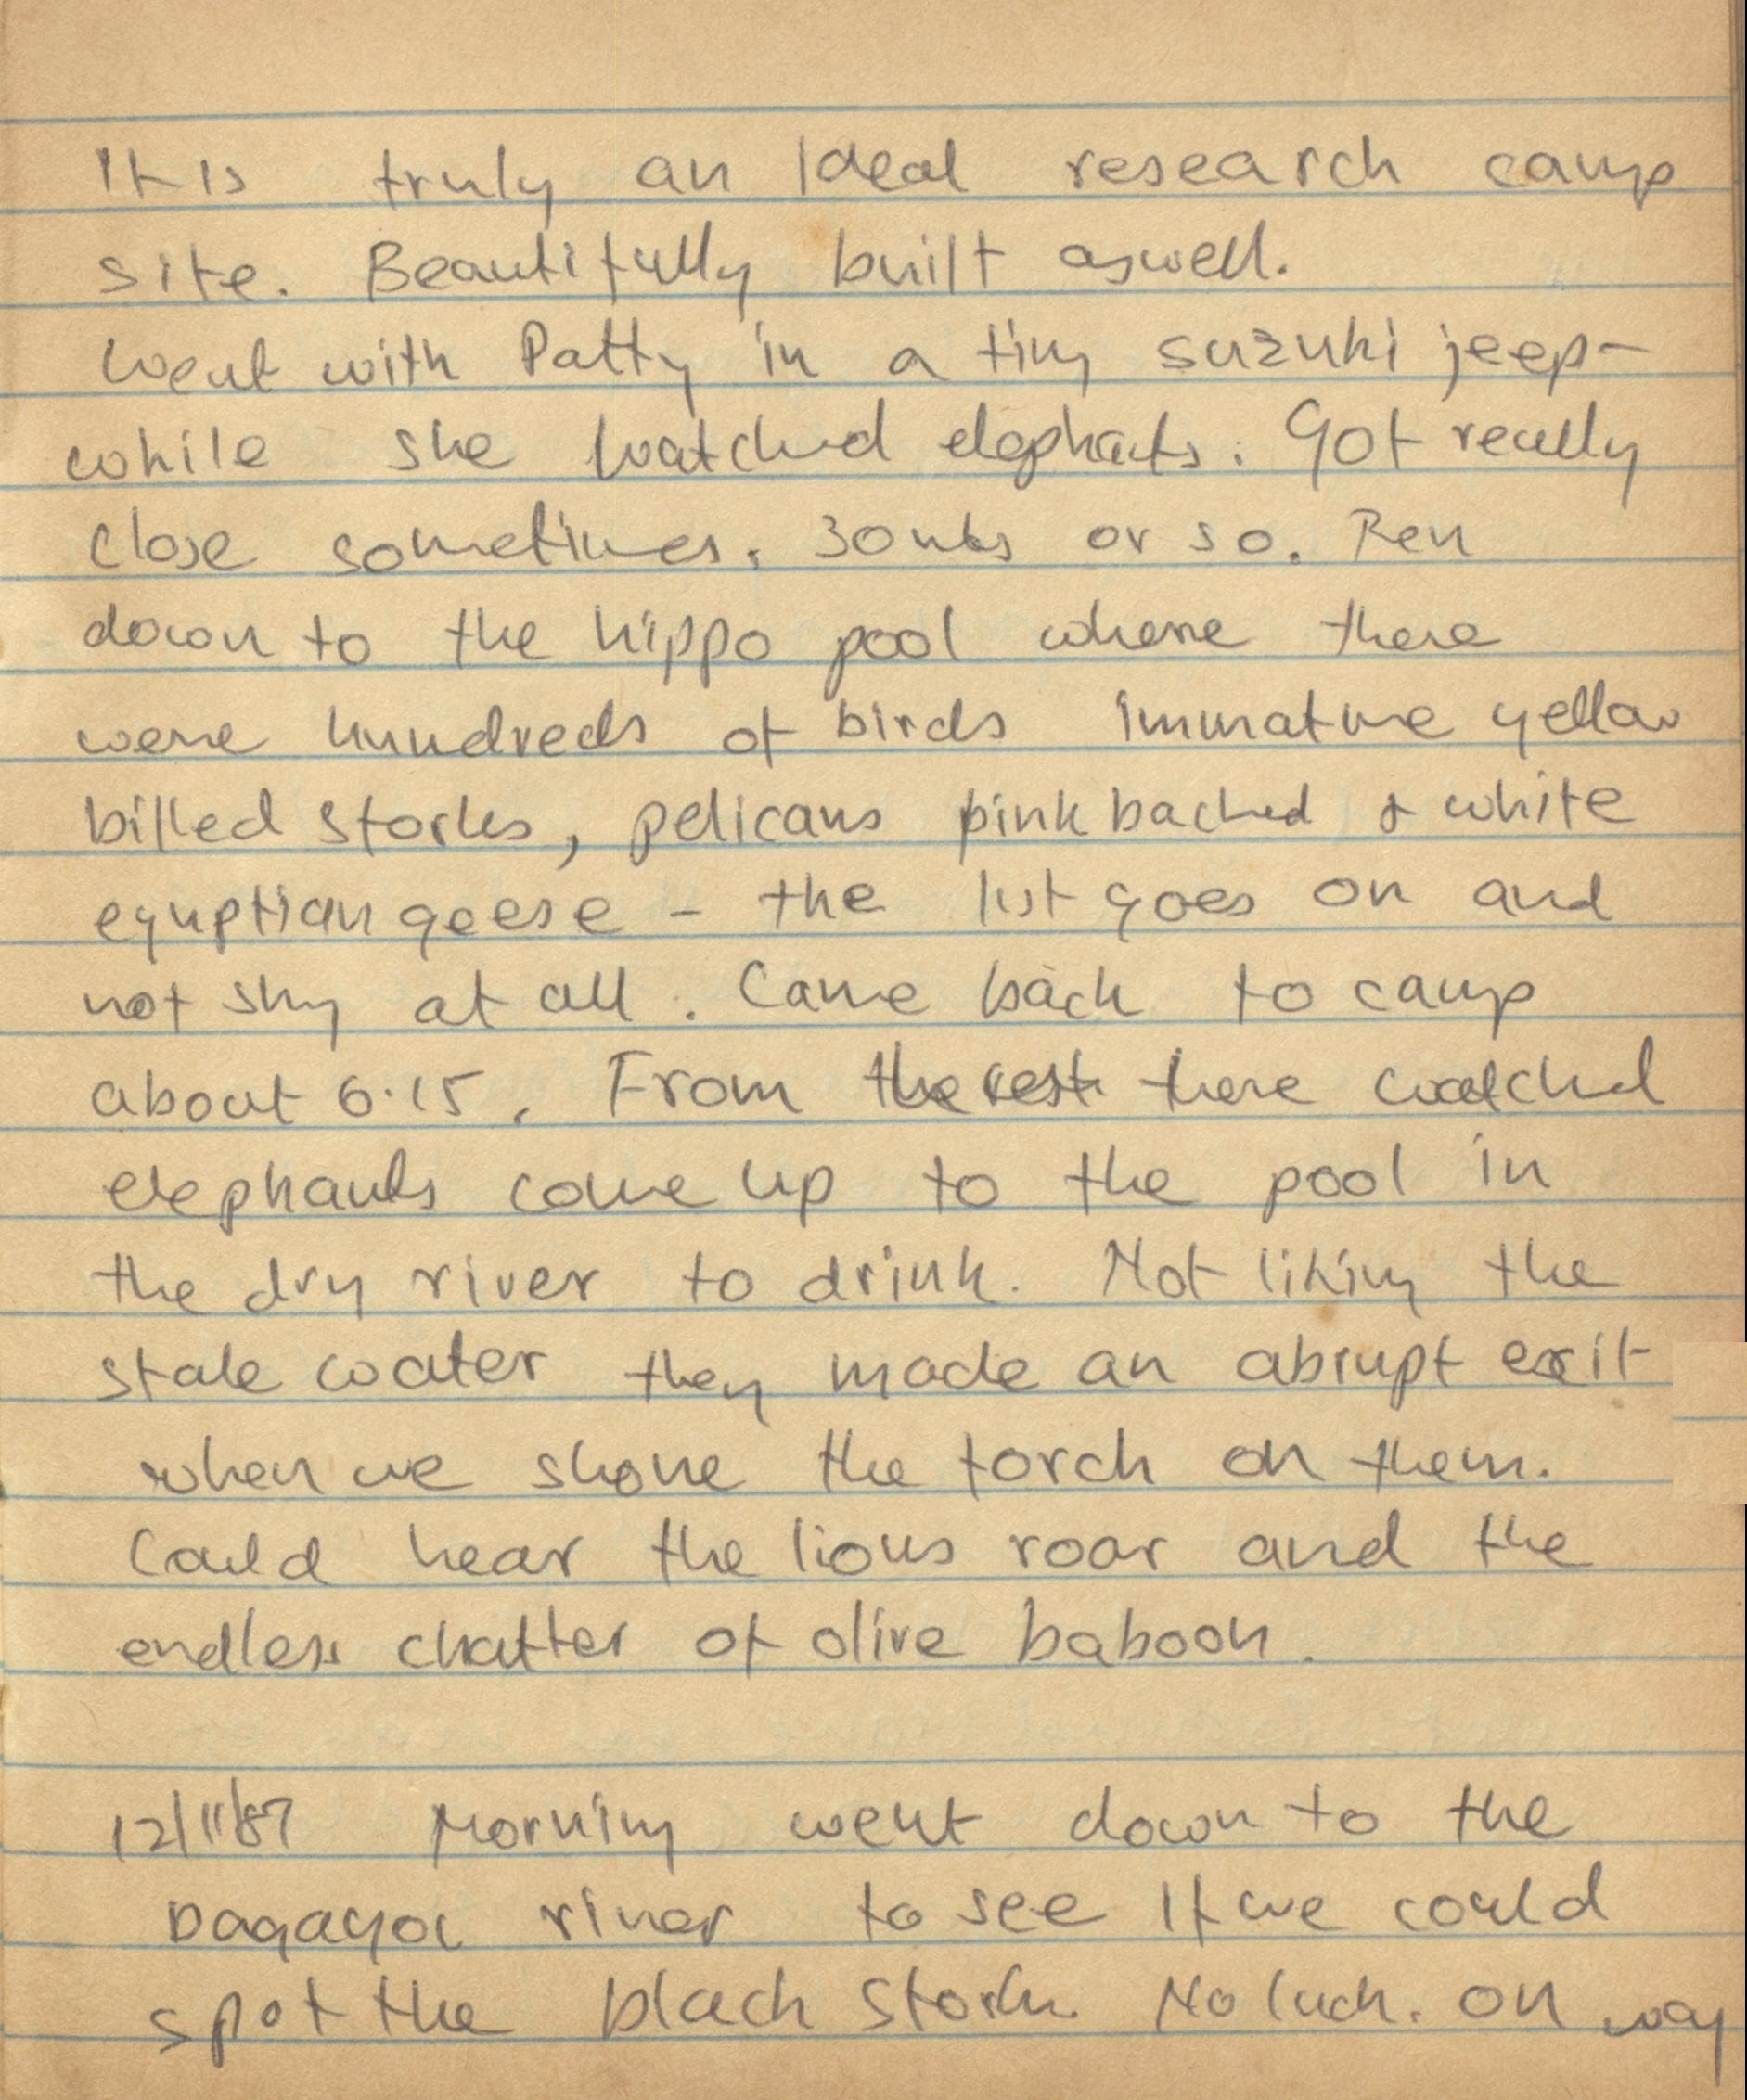 It is truly an Ideal research camp
site. Beautifully built aswell.
Went with Patty in a tiny suzuki jeep-
while she watched elephants. Got really
close sometimes. 30 mts or so. Ren
down to the hippo pool where there
were hundreds of birds immature yellow
billed storks, pelicans pink backed & white
egyptian geese - the list goes on and
not shy at all. Came back to camp
about 6.15. From the rest there watched
elephants come up to the pool in
the dry river to drink. Not liking the
stale water they made an abrupt exit
when we shone the torch on them.
Could hear the lions roar and the
endless chatter of olive baboon.
12/11/87 Morning went down to the
river to see If we could
spot the black stork. No luck. On way